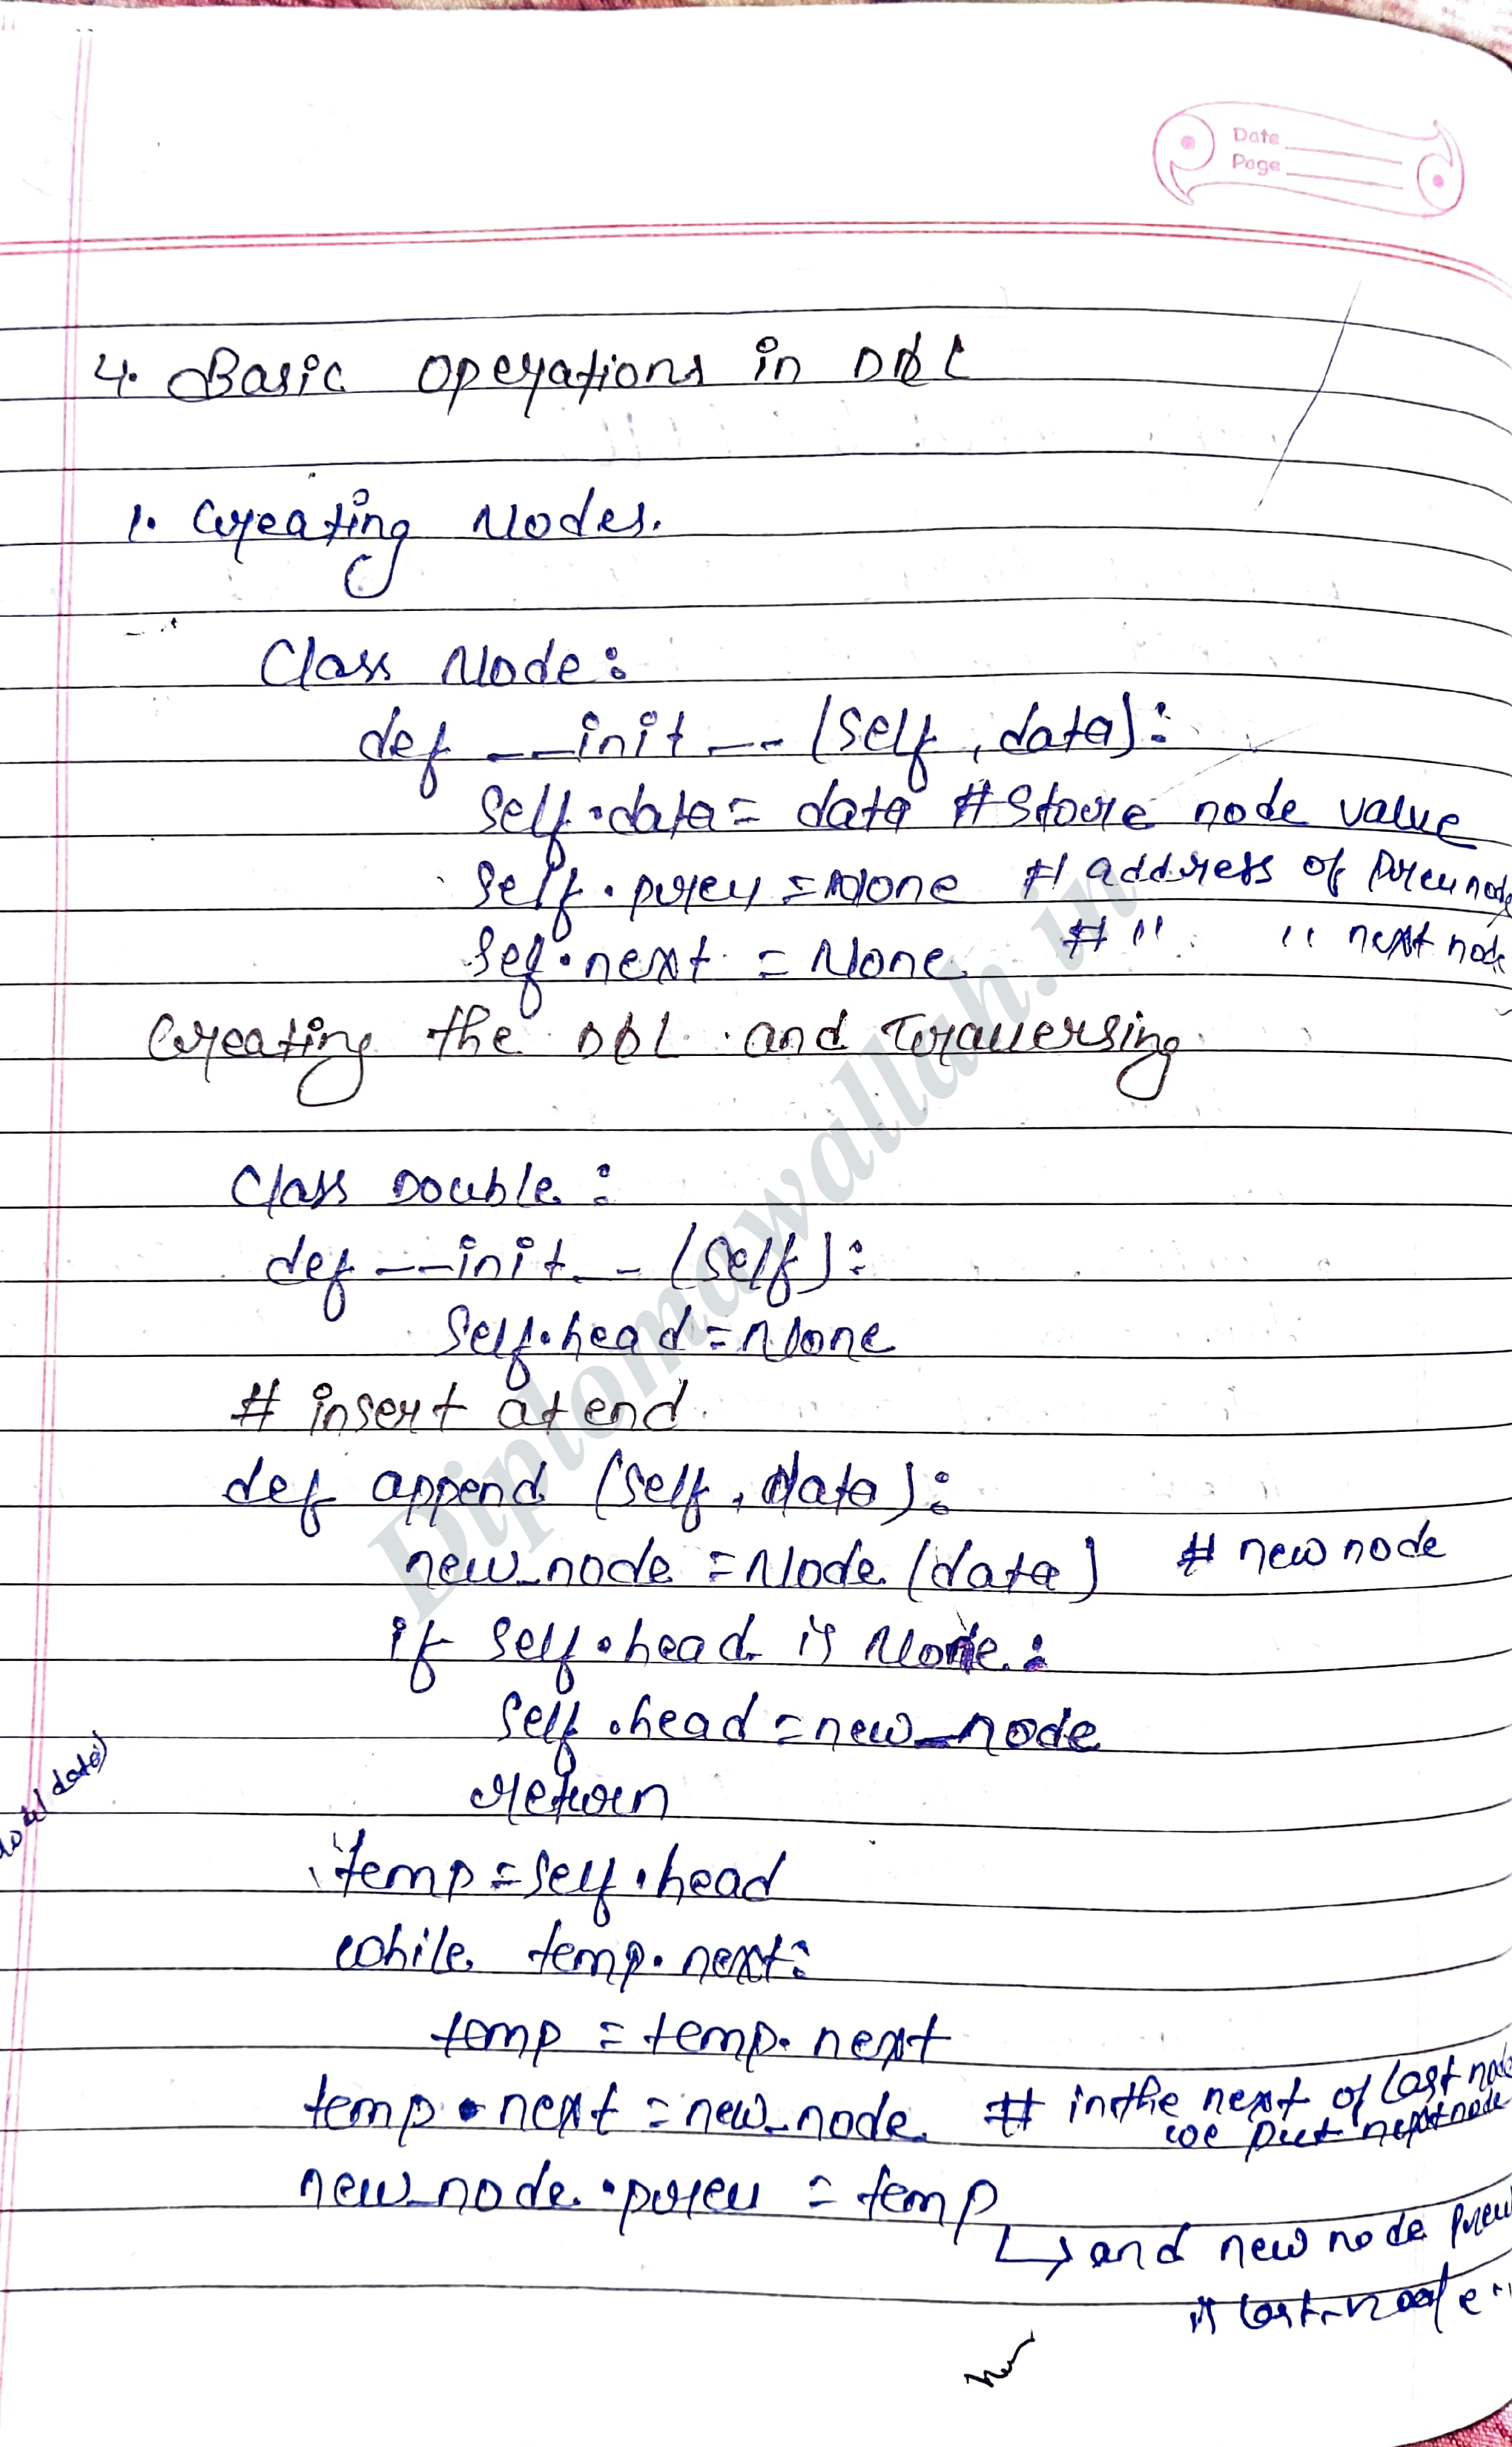 Date
Page
4. Basic operations in DLL
1. Creating Nodes.
Class Node:
def __init__(self, data):
self.data = data # Store node value
self.prev = None # address of prev node
sef.next = None # " " next node
Creating the DLL and Traversing
Class Double:
def __init__(self):
self.head = None
# insert at end
def append (self, data):
new_node = Node (data) # new node
if self.head is None:
self.head = new_node
return
temp = self.head
while temp.next:
temp = temp.next
temp.next = new_node # in the next of last node
we put next node
new_node.prev = temp
↳ and new node prev
is last node
data)
Diplomawallah.in